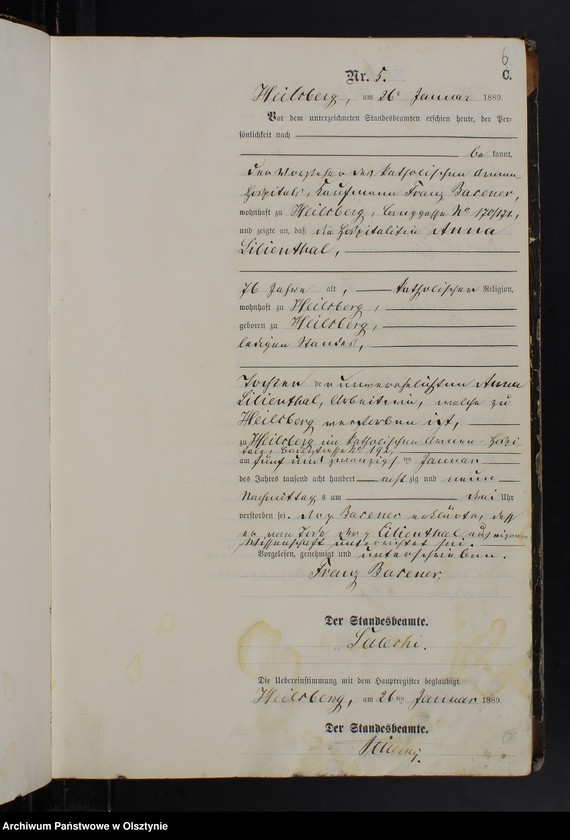 6
Nr. 5.
C.
Heilsberg, am 26t Januar 1889.
Vor dem unterzeichneten Standesbeamten erschien heute, der Per-
sönlichkeit nach
be kannt,
der Vorsteher des katholischen Armen
Hospitals, Kaufmann Franz Basener,
wohnhaft zu Heilsberg, Langgasse No 170/171,
und zeigte an, daß die Hospitalitin Anna
Lilienthal,
76 Jahre alt, katholischer Religion,
wohnhaft zu Heilsberg,
geboren zu Heilsberg,
ledigen Standes,
Tochter der unverehelichten Anna
Lilienthal, Arbeiterin, welche zu
Heilsberg verstorben ist,
zu Heilsberg im katholischen Armen-Hospi
tale, No 192,
am fünf und zwanzigsten Januar
des Jahres tausend acht hundert achtzig und neun
Nachmittags um drei Uhr
verstorben sei. Der p. Basener erklärte, daß
er vom Tode der p Lilienthal aus eigener
Wissenschaft unterrichtet sei.
Vorgelesen, genehmigt und unterschrieben.
Franz Basener.
Der Standesbeamte.
Die Uebereinstimmung mit dem Hauptregister beglaubigt.
Heilsberg, am 26ten Januar 1889.
Der Standesbeamte.
Archiwum Państwowe w Olsztynie